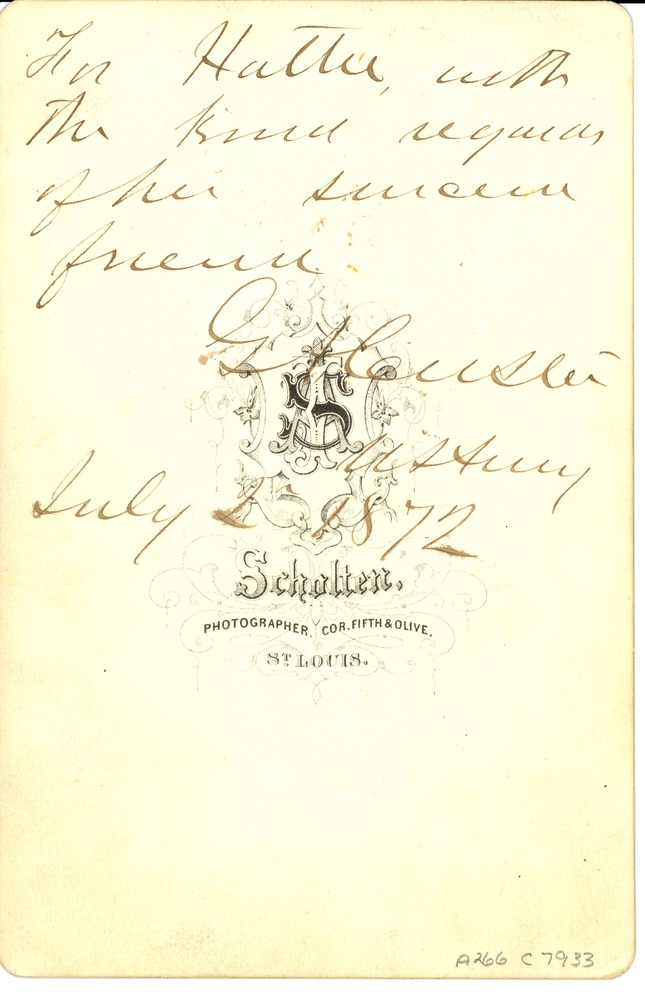 For Hattie, with
the kind regards
of her sincere
friend
G A Custer
US Army
July 2d 1872
S
Scholten.
PHOTOGRAPHER, COR. FIFTH & OLIVE.
ST LOUIS.
A266 C7933